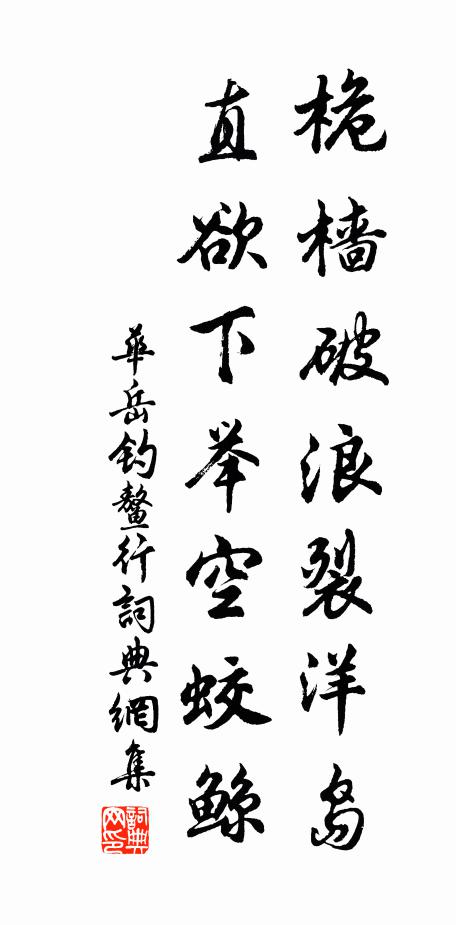 桅樯破浪裂洋岛
直欲下举空蛟鲸
華岳钓鳌行詞典網集
詞典网印